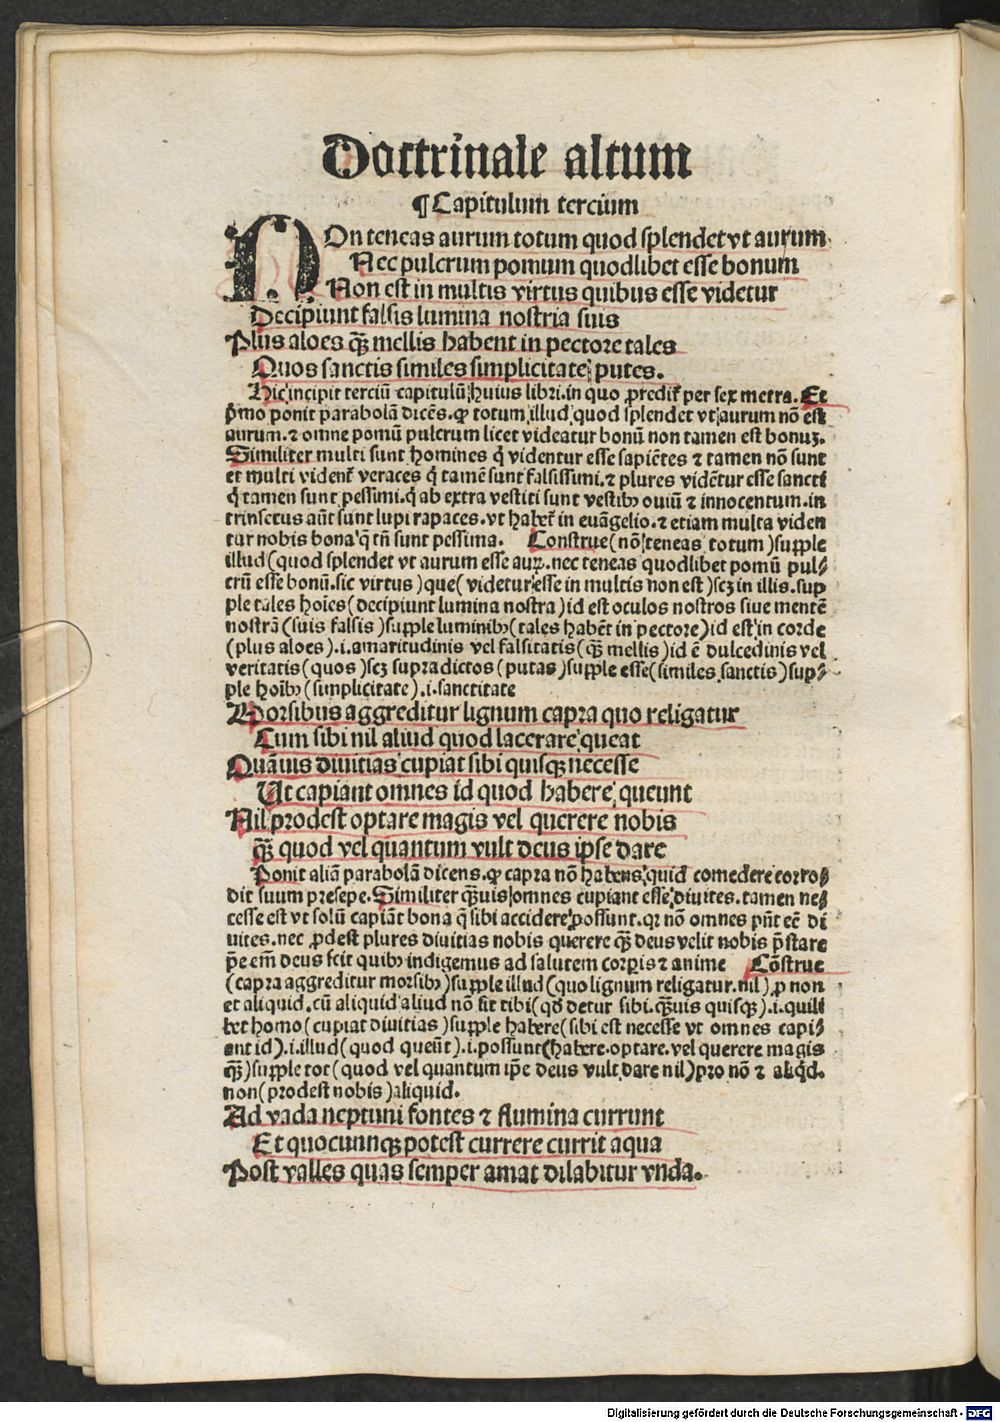 Doctrinale altum
¶ Capitulum tercium
NOn teneas aurum totum quod splendet vt aurum
Nec pulcrum pomum quodlibet esse bonum
Non est in multis virtus quibus esse videtur
Decipiunt falsis lumina nostria suis
Plus aloes qȝ̄ mellis habent in pectore tales
Quos sanctis similes simplicitate putes.
Hic incipit terciū capitulū huius libri. in quo ꝓredit᷑ per sex metra. Et
p̄mo ponit parabolā dicēs. ꝙ totum illud quod splendet vt aurum nō est
aurum. ⁊ omne pomū pulcrum licet videatur bonū non tamen est bonuȝ.
Similiter multi sunt homines q̇ videntur esse sapiētes ⁊ tamen nō sunt
et multi vident᷑ veraces q̇ tamē sunt falsissimi. ⁊ plures vidētur esse sancti
q̇ tamen sunt pessimi. q̇ ab extra vestiti sunt vestibꝰ ouiū ⁊ innocentum. in
trinsecus aūt sunt lupi rapaces. vt habet᷑ in euāgelio. ⁊ etiam multa viden
tur nobis bona q̇ tn̄ sunt pessima. Construe (nō teneas totum) supple
illud (quod splendet vt aurum esse auꝝ. nec teneas quodlibet pomū pul⸗
crū esse bonū. sic virtus) que (videtur esse in multis non est) scȝ in illis. sup
ple tales hoīes (decipiunt lumina nostra) id est oculos nostros siue mentē
nostrā (suis falsis) supple luminibꝰ (tales habēt in pectore) id est in corde
(plus aloes) .i. amaritudinis vel falsitatis (qȝ̄ mellis) id ē dulcedinis vel
veritatis (quos) scȝ supra dictos (putas) supple esse (similes sanctis) sup⸗
ple hoībꝰ (simplicitate) .i. sanctitate
Morsibus aggreditur lignum capra quo religatur
Cum sibi nil aliud quod lacerare queat
Quāuis diuitias cupiat sibi quisqȝ necesse
Ut capiant omnes id quod habere queunt
Nil prodest optare magis vel querere nobis
qȝ̄ quod vel quantum vult deus ipse dare
Ponit aliā parabolā dicens. ꝙ capra nō habens quid comedere corro⸗
dit suum presepe. Similiter qȝ̄uis omnes cupiant esse diuites. tamen ne⸗
cesse est vt solū capiāt bona q̄ sibi accidere possunt. qꝛ nō omnes pn̄t eē di
uites. nec ꝓdest plures diuitias nobis querere qȝ̄ deus velit nobis p̄stare
ip̄e em̄ deus scit quibꝰ indigemus ad salutem corꝑis ⁊ anime Cōstrue
(capra aggreditur morsibꝰ) supple illud (quo lignum religatur. nil) ꝓ non
et aliquid. cū aliquid aliud nō sit tibi (qd̄ detur sibi. qȝ̄uis quisqȝ) .i. quili
bet homo (cupiat diuitias) supple habere (sibi est necesse vt omnes capi⸗
ant id) .i. illud (quod queūt) .i. possunt (habere. optare. vel querere magis
qȝ̄) supple tot (quod vel quantum ip̄e deus vult dare nil) pro nō ⁊ aliq̇d.
non (prodest nobis) aliquid.
Ad vada neptuni fontes ⁊ flumina currunt
Et quocunqȝ potest currere currit aqua
Post valles quas semper amat dilabitur vnda.
Digitalisierung gefördert durch die Deutsche Forschungsgemeinschaft - DFG